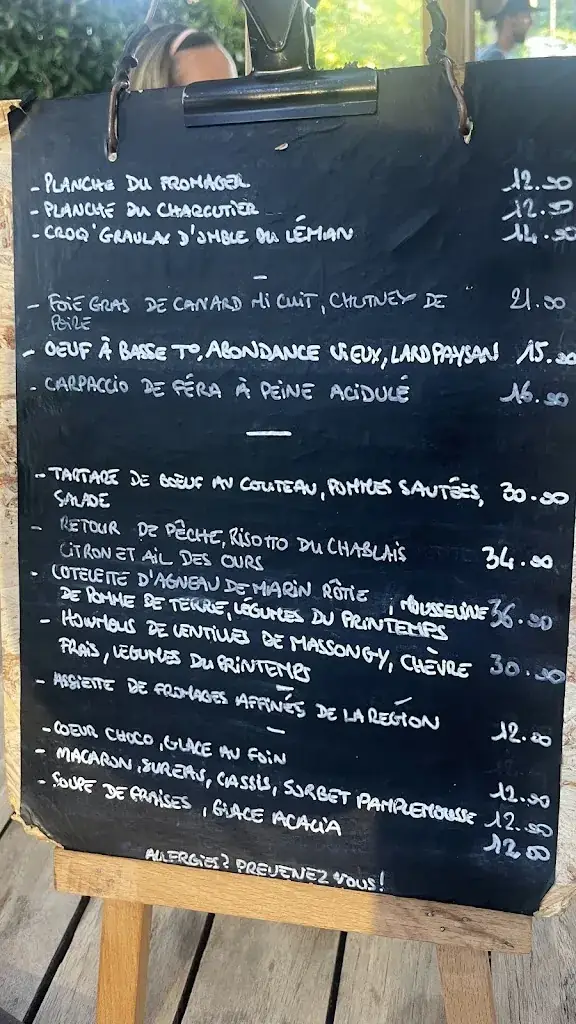 - PLANCHE DU FROMAGER 12.00
- PLANCHE DU CHARCUTIER 12.00
- CROQ'GRAVLAX D'OMBLE DU LÉMAN 14.00
- FOIE GRAS DE CANARD MI CUIT, CHUTNEY DE 21.00
POIRE
- OEUF À BASSE T°, ABONDANCE VIEUX, LARD PAYSAN 15.00
- CARPACCIO DE FÉRA À PEINE ACIDULÉ 16.00
- TARTARE DE BOEUF AU COUTEAU, POMMES SAUTÉES, 30.00
SALADE
- RETOUR DE PÊCHE, RISOTTO DU CHABLAIS
CITRON ET AIL DES OURS 34.00
- COTELETTE D'AGNEAU DE MARIN RÔTIE, MOUSSELINE 36.00
DE POMME DE TERRE, LÉGUMES DU PRINTEMPS
- HOUMOUS DE LENTILLES DE MASSONGY, CHÈVRE 30.00
FRAIS, LEGUMES DU PRINTEMPS
- ASSIETTE DE FROMAGES AFFINÉS DE LA RÉGION 12.00
- COEUR CHOCO, GLACE AU FOIN 12.00
- MACARON, SUREAU, CASSIS, SORBET PAMPLEMOUSSE 12.00
- SOUPE DE FRAISES, GLACE ACACIA 12.00
ALLERGIES? PREVENEZ VOUS!